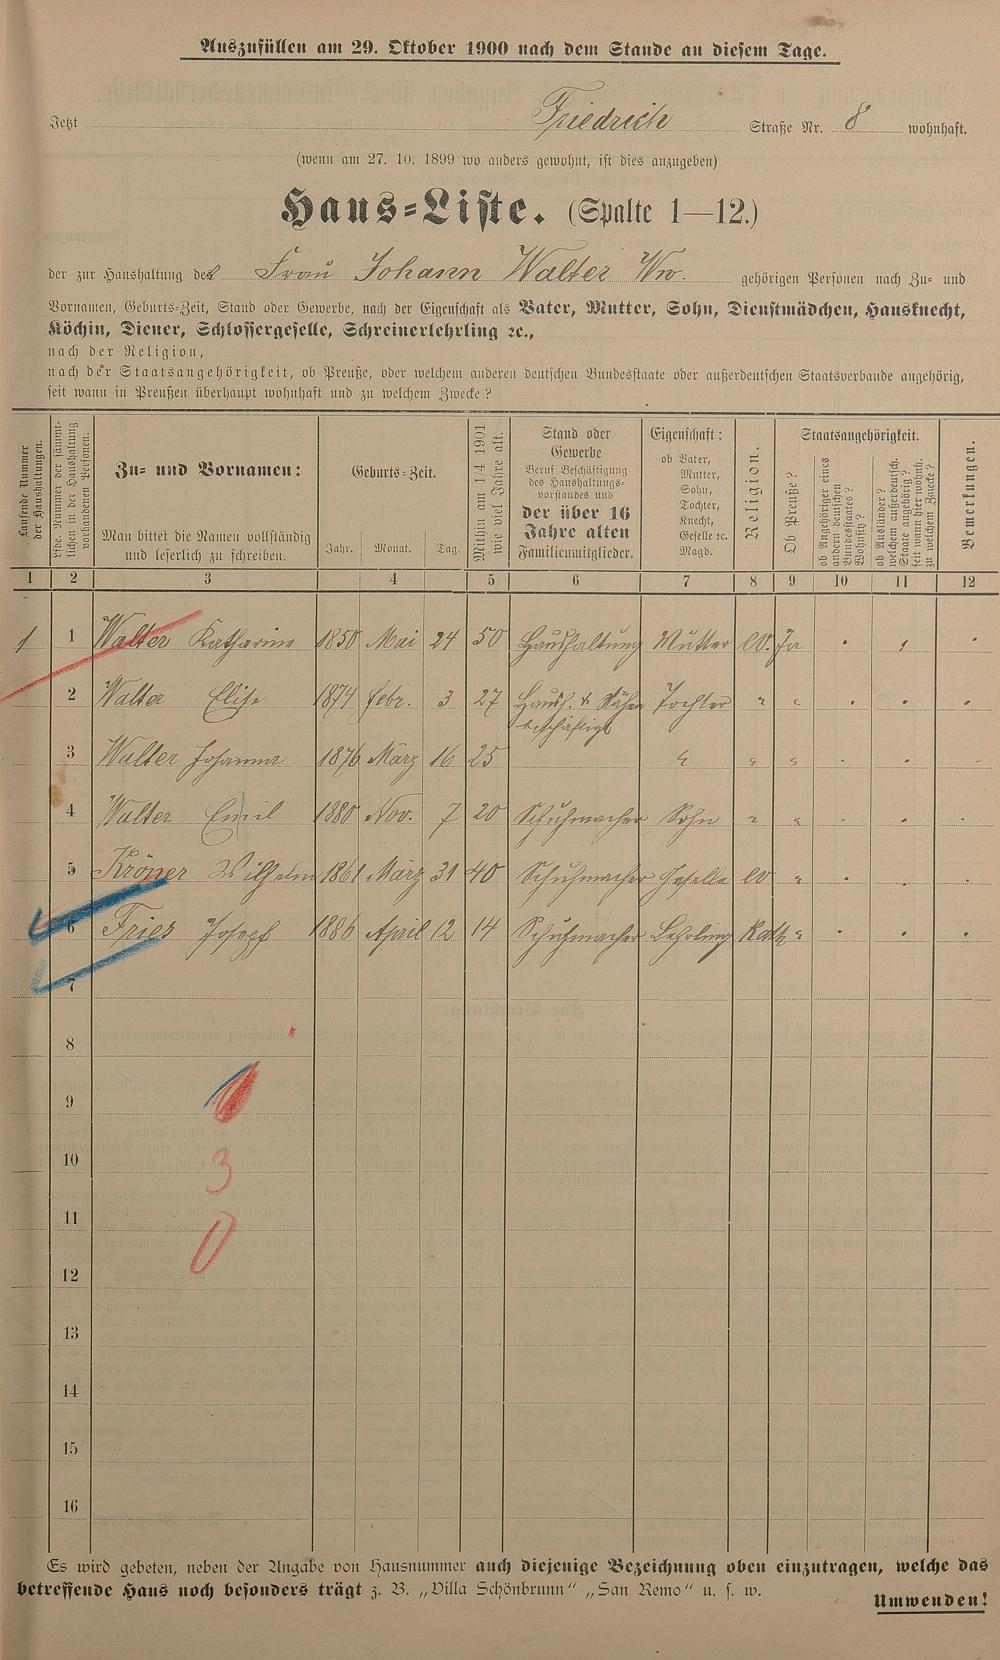 Auszufüllen am 29. Oktober 1900 nach dem Stande an diesem Tage.
Jetzt Friedrich Straße Nr. 8 wohnhaft.
(wenn am 27. 10. 1899 wo anders gewohnt, ist dies anzugeben)
Haus-Liste. (Spalte 1—12.)
der zur Haushaltung der Frau Johann Walter Ww. gehörigen Personen nach Zu- und
Vornamen, Geburts-Zeit, Stand oder Gewerbe, nach der Eigenschaft als Vater, Mutter, Sohn, Dienstmädchen, Hausknecht,
Köchin, Diener, Schlossergeselle, Schreinerlehrling ꝛc.,
nach der Religion,
nach der Staatsangehörigkeit, ob Preuße, oder welchem anderen deutschen Bundesstaate oder außerdeutschen Staatsverbande angehörig,
seit wann in Preußen überhaupt wohnhaft und zu welchem Zwecke?
Laufende Nummer
der Haushaltungen.
Lfde. Nummer der sämmt-
lichen in der Haushaltung
vorhandenen Personen.
Zu- und Vornamen:
Man bittet die Namen vollständig
und leserlich zu schreiben.
Geburts-Zeit.
Jahr. Monat. Tag.
Mithin am 1/4 1901
wie viel Jahre alt.
Stand oder
Gewerbe
Beruf Beschäftigung
des Haushaltungs-
vorstandes und
der über 16
Jahre alten
Familienmitglieder.
Eigenschaft:
ob Vater,
Mutter,
Sohn,
Tochter,
Knecht,
Geselle ꝛc.
Magd.
Religion.
Staatsangehörigkeit.
Ob Preuße?
ob Angehöriger eines
andern deutschen
Bundesstaates?
Wohnsitz?
ob Ausländer?
welchem außerdeutsch.
Staate angehörig?
seit wann hier wohnh.
zu welchem Zwecke?
Bemerkungen.
1 2 3 4 5 6 7 8 9 10 11 12
1 1 Walter Katharine 1850 Mai 24 50 Haushaltung Mutter ev. Ja
2 Walter Elise 1874 Febr. 3 27 Haush. & Nähen Tochter " "
beschäftigt
3 Walter Johanna 1876 März 16 25 " " "
4 Walter Emil 1880 Nov. 7 20 Schuhmacher Sohn " "
5 Kröner Wilhelm 1861 März 31 40 Schuhmacher Geselle ev "
6 Fries Josef 1886 April 12 14 Schuhmacher Lehrling Kath "
7
8
9
10 3
11 0
12
13
14
15
16
Es wird gebeten, neben der Angabe von Hausnummer auch diejenige Bezeichnung oben einzutragen, welche das
betreffende Haus noch besonders trägt z. B. „Villa Schönbrunn“ „San Remo“ u. s. w.
Umwenden!